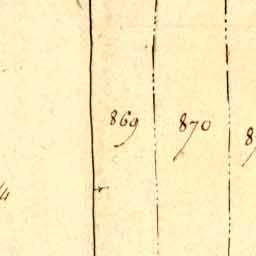 869
870